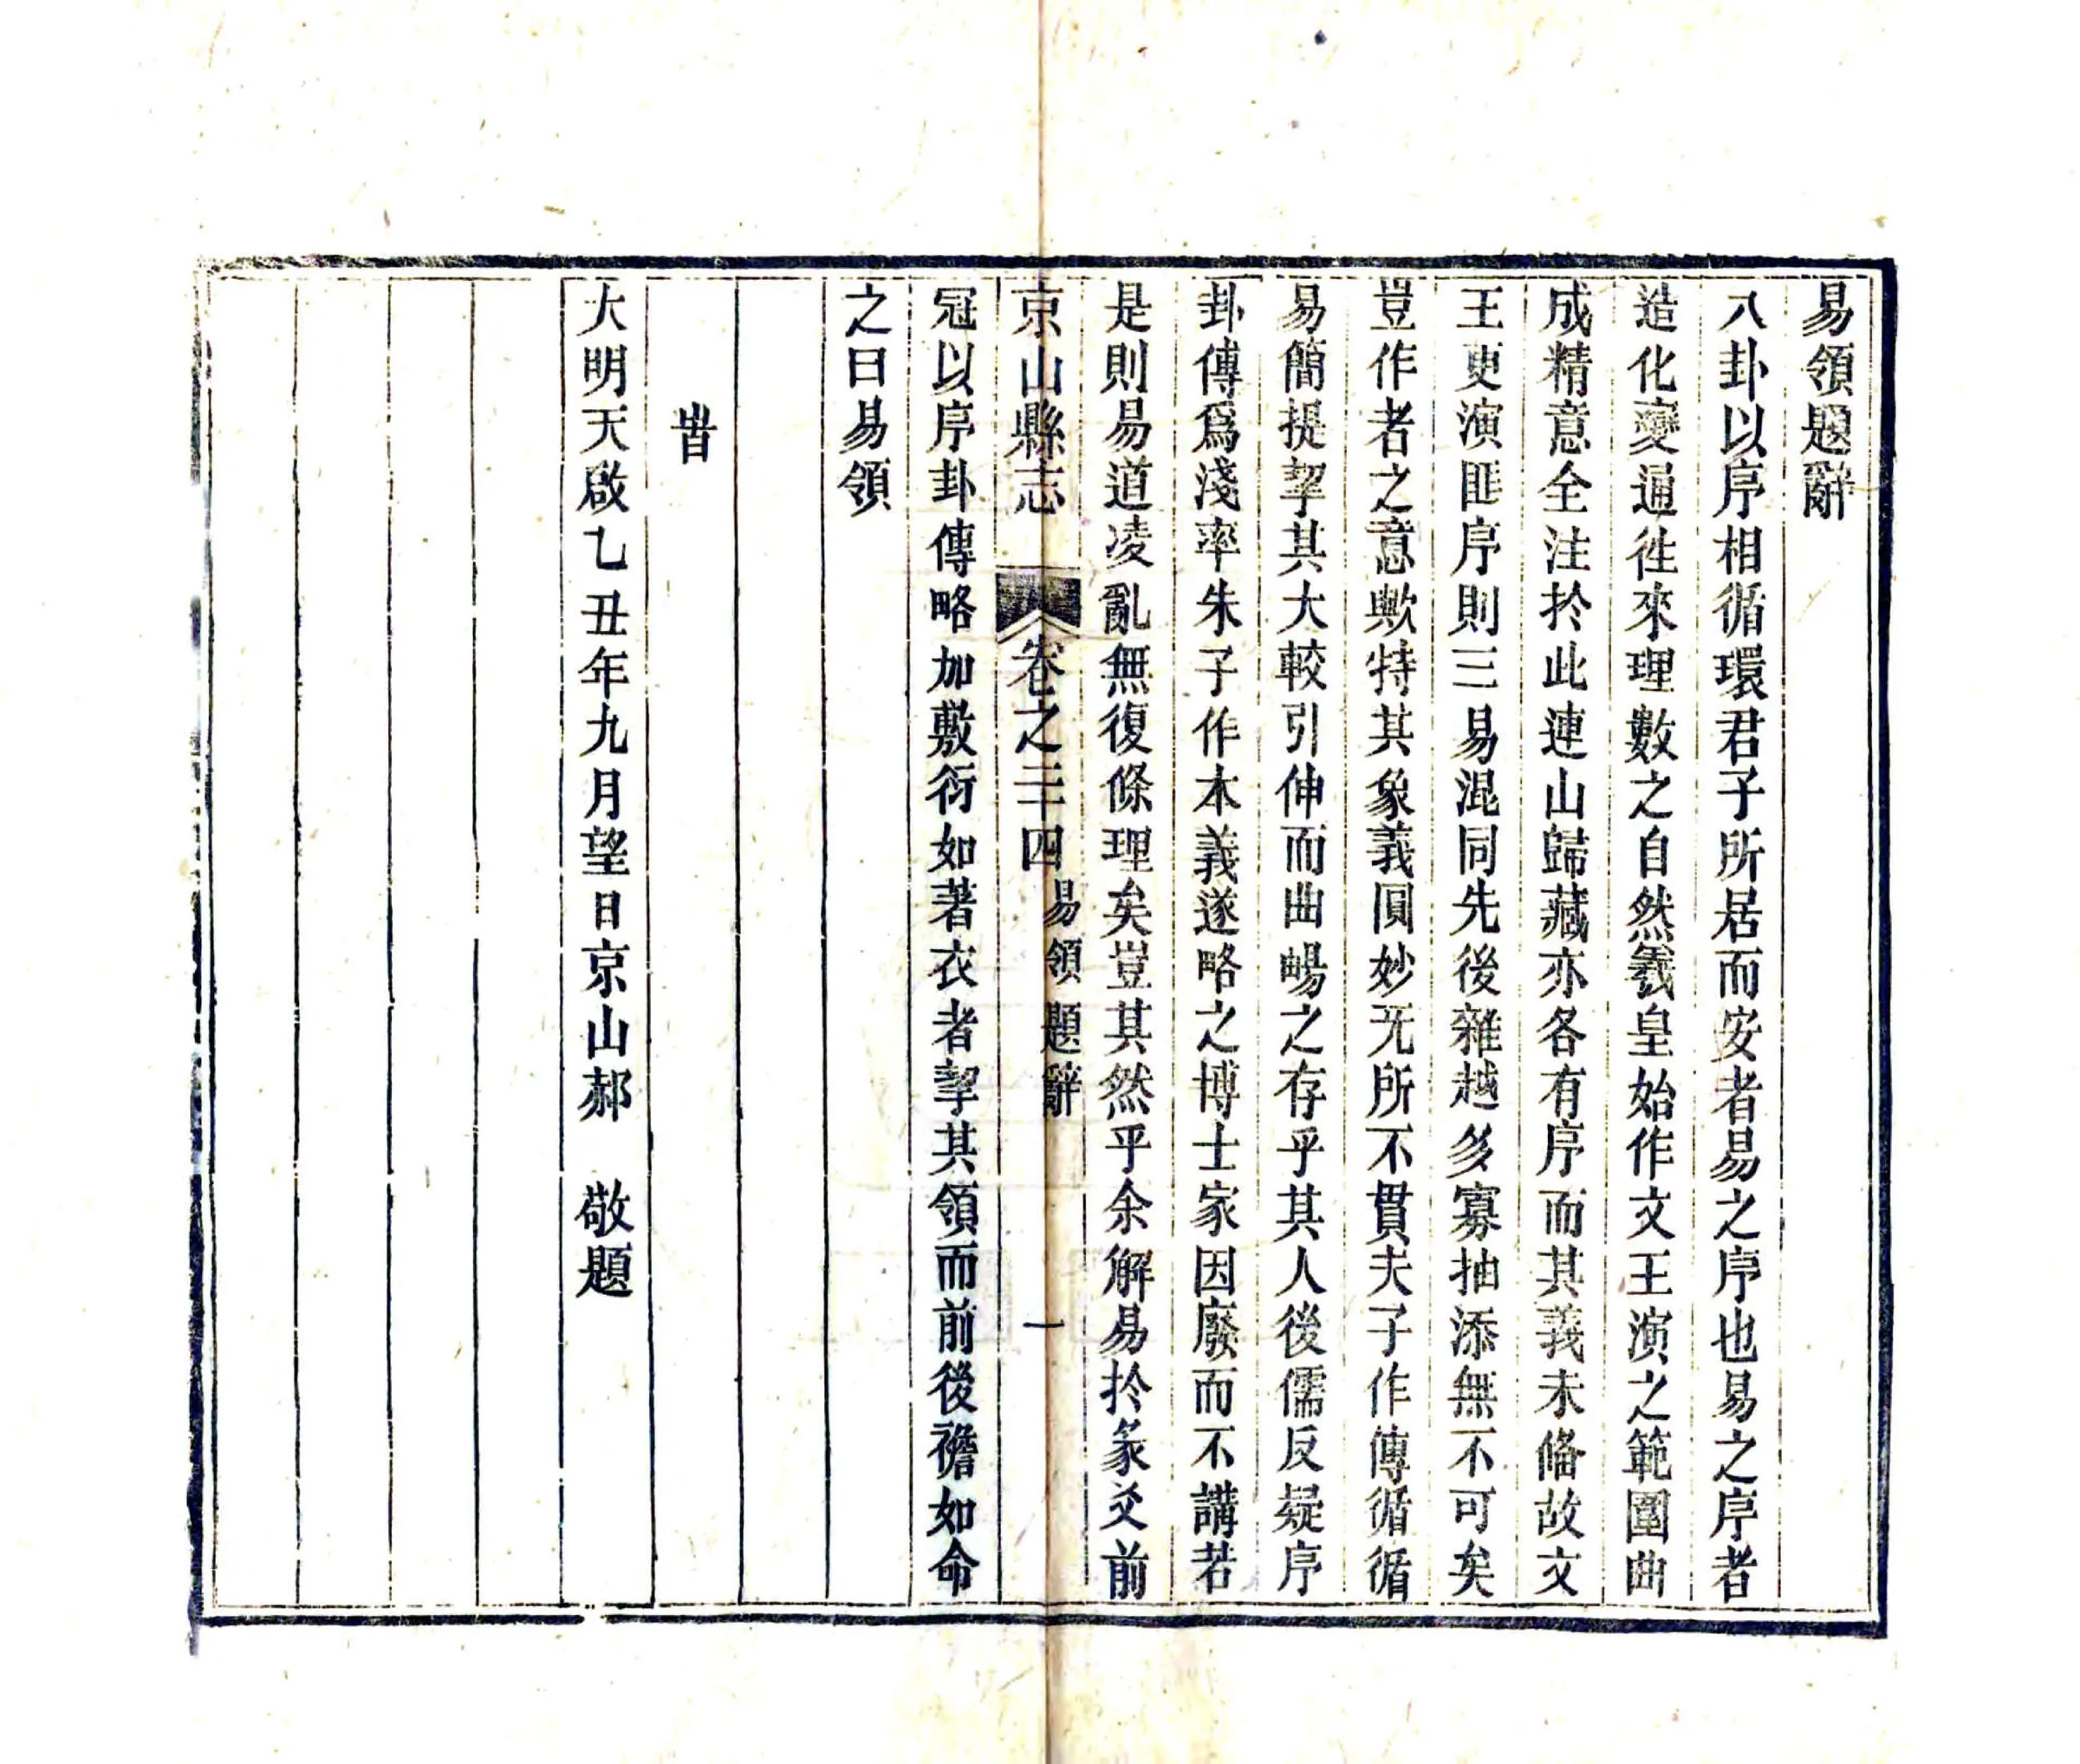 易領題辭
八卦以序相循環君子所居而安者易之序也易之序者
造化變通徃來理數之自然羲皇始作文王演之範圍曲
成精意全注於此連山歸藏亦各有序而其義未偹故文
王更演匪序則三易混同先後雜越多寡抽添無不可矣
豈作者之意歟特其象義圓妙无所不貫夫子作傳循循
易簡提挈其大較引伸而曲暢之存乎其人後儒反疑序
卦傳爲淺率朱子作本義遂略之博士家因廢而不講若
是則易道凌亂無復條理矣豈其然乎余解易於彖爻前
京山縣志 卷之三十四 易領題辭 一
冠以序卦傳略加敷衍如著衣者挈其領而前後襜如命
之曰易領
旹
大明天啟乙丑年九月望日京山郝 敬題